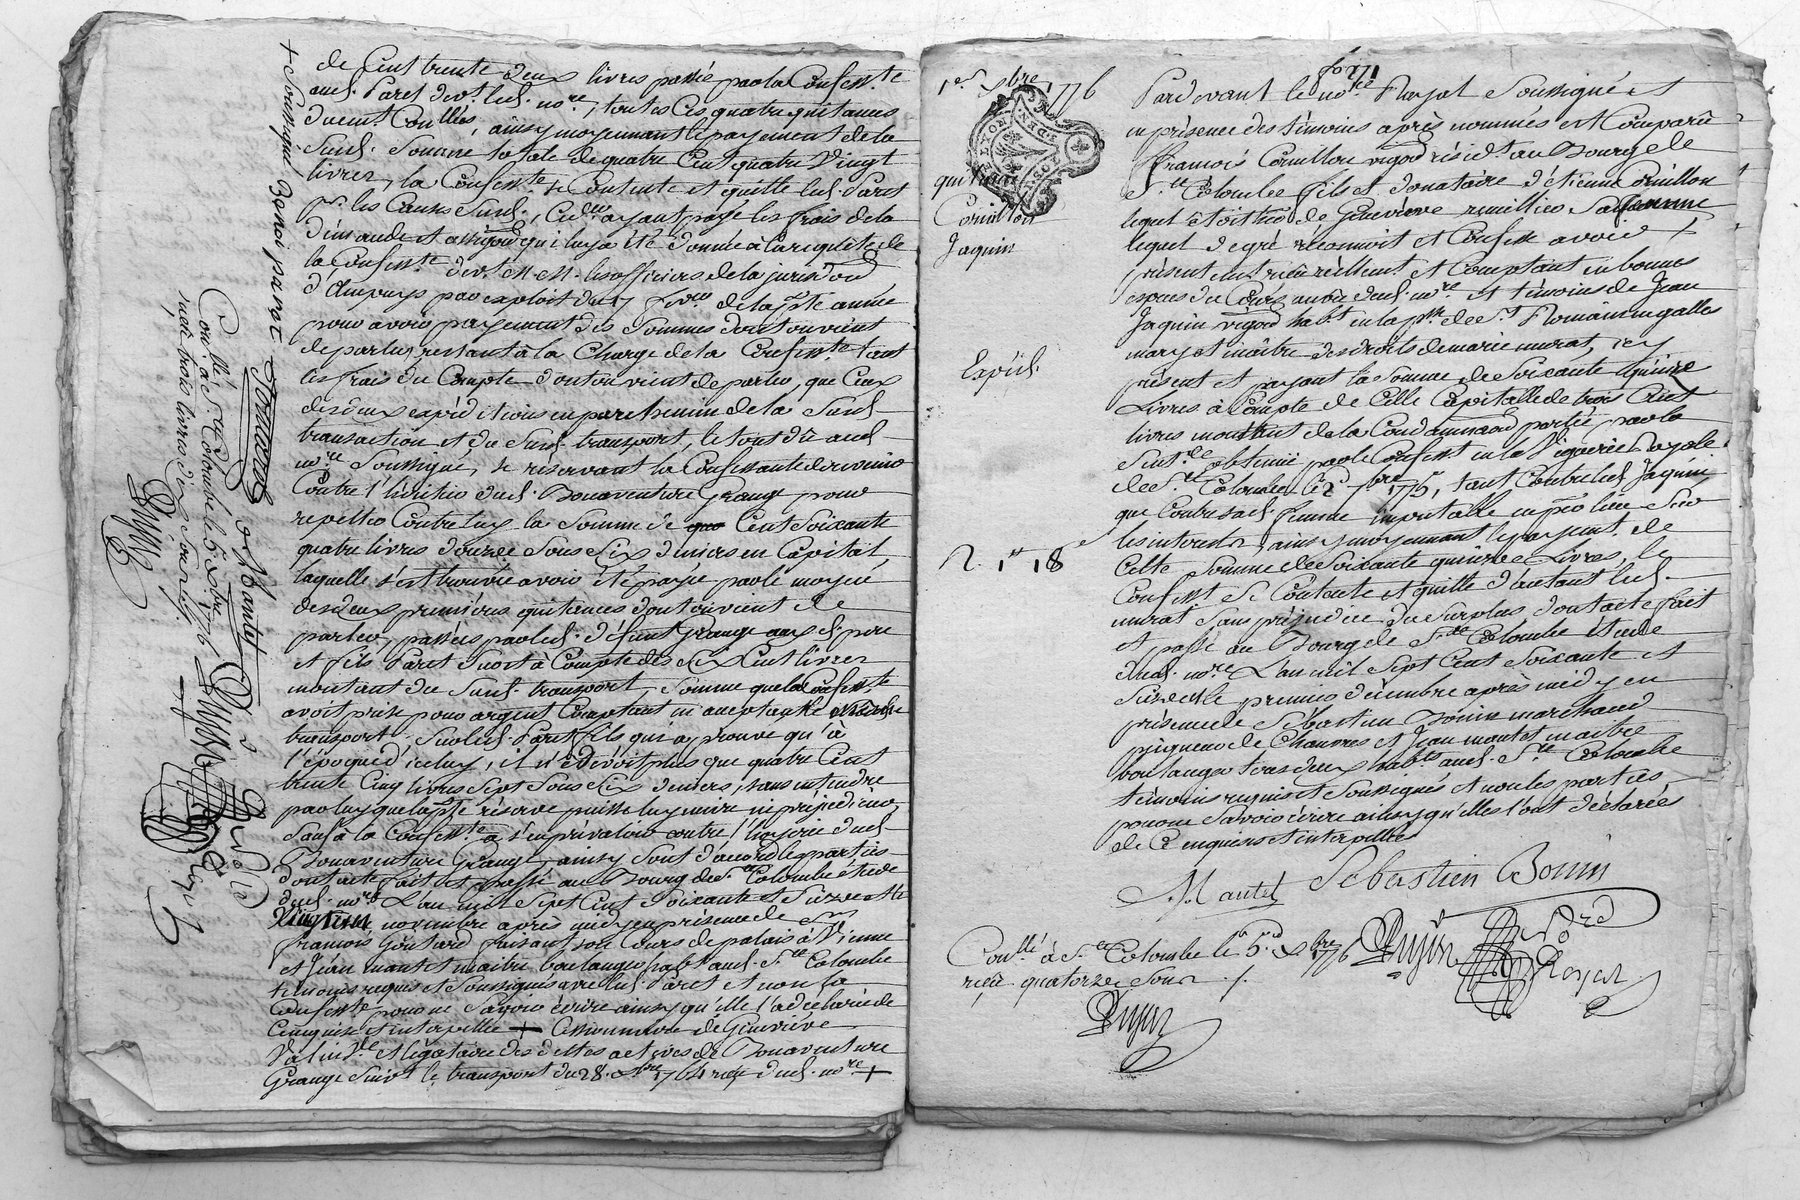 de Cent trente deux livres passée par la Confess.te
aud. Paret dev.t led. no.re, toutes ces quatre quitances
duement Conllées, ainsy moyennant le payement de la
Susd. Somme totale de quatre Cent quatre Vingt
livres, la Confess.te se Contente et quitte led. Paret
p.r les Causes Susd., Ced. ayant payé les frais de la
demande et assig.on qui luy a été donnée à la requête de
la Confess.te dev.t M.M. les officiers de la jurisd.on
d'Ampuys par exploit du 17 de la p.nte année
pour avoir payement des Sommes dont on vient
de parler, restant à la Charge de la Confess.te tant
les frais du Compte dont on vient de parler, que Ceux
des deux expéditions en parchemin de la Susd.
transaction et du Susd. transport, le tout dû aud.
no.re Soussigné, se réservant la Confessante de revenir
Contre l'heritier dud. Bonaventure Grange pour
repetter Contre luy la Somme de Cent Soixante
quatre livres douze Sous Six deniers en Capital,
laquelle s'est trouvée avoir été payée par le moyen
des deux premières quitances dont on vient de
parler, passées par led. défunt Grange aux d. père
et fils Paret Suort à Compte des Six Cent livres
montant du Susd. transport, Somme que la Confess.te
avoit prise pour argent Comptant en acceptant le
transport, Sur led. Paret fils qui approuve qu'à
l'époque d'iceluy, il n'e devoit plus que quatre Cent
trente Cinq livres Sept Sous Six deniers, sans entendre
par luy que la p.nte réserve puisse luy nuire ni préjudicier,
Sauf à la Confess.te à s'en prévaloir contre l'hoyrie dud.
Bonaventure Grange, ainsy Sont d'accord les parties
dont acte fait et passé au Bourg de S.te Colombe étude
dud. no.re L'an mil Sept Cent Soixante et Seize et le
Vingtun novembre après midy en présence de S.r
françois Goutard faisant son Cours de palais à Vienne
et Jean Mantel maitre boulanger hab.t aud. S.te Colombe
temoins requis et Soussignés avec led. Paret et non la
Confess.te pour ne Savoir écrire ainsy qu'elle l'a déclaré de
Ce enquise et interpellée + Cessionnaire de Geneviève
et légataire des dettes actives de Bonaventure
Grange Suiv.t le transport du 28. Xbre 1764 reçu dud. no.re +
+ Soussigné / Benoi paret
Goutard
J. Mantel
Conllé à S.te Colombe le 5 Xbre 1776
reçu trois livres dix
Pujin
fo 271
1er Xbre 1776
quittance
Corvillon
Jaquin
Expéd.
Pardevant le no.re Royal Soussigné et
en présence des témoins après nommés est Comparû
françois Corvillon vigon résid.t au Bourg de
S.te Colombe fils et donataire d'étienne Corvillon
lequel étoit héri de Genevieve remillier Sa femme
lequel de gré reconnoit et Confesse avoir +
présentement reçu réellement et Comptant en bonnes
especes du Cours au vû dud. no.re et témoins de Jean
Jaquin vigon hab.t en la p.sse de S.t Romain en galles
mary et maître des droits de marie murat, icy
présent et payant la Somme de Soixante quinze
Livres à Compte de Celle Capitalle de trois Cent
livres montant de la Condamnaon portée par la
Sent.ce obtenüe par le Confess.t en la Viguerie Royale
de S.te Colombe le 7bre 1775, tant Contre led. Jaquin
que Contre sad. femme imputable en p.er lieu Sur
les interets, ainsy moyennant le payem.t de
Cette Somme de Soixante quinze Livres, le
Confess.t Se Contente et quitte d'autant led.
murat Sans préjudice du Surplus dont acte fait
et passé au Bourg de S.te Colombe étude
dud. no.re L'an mil Sept Cent Soixante et
Seize et le premier décembre après midy en
présence de Sébastien Bonin marchand
pigneur de Chanvres et Jean mantel maitre
boulanger tous deux hab.ts aud. S.te Colombe
témoins requis et Soussignés et non les parties
pour ne Savoir écrire ainsy qu'elles l'ont déclaré
de Ce enquises et interpellées
J. Mantel Sebastien Bonin
Conllé à S.te Colombe le 5 Xbre 1776
reçu quatorze Sous
Pujin